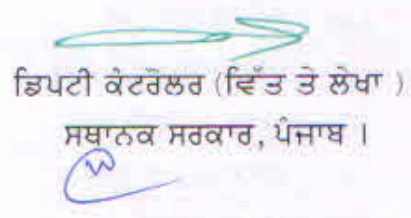 ਡਿਪਟੀ ਕੰਟਰੌਲਰ (ਵਿੱਤ ਤੇ ਲੇਖਾ )
ਸਥਾਨਕ ਸਰਕਾਰ, ਪੰਜਾਬ ।